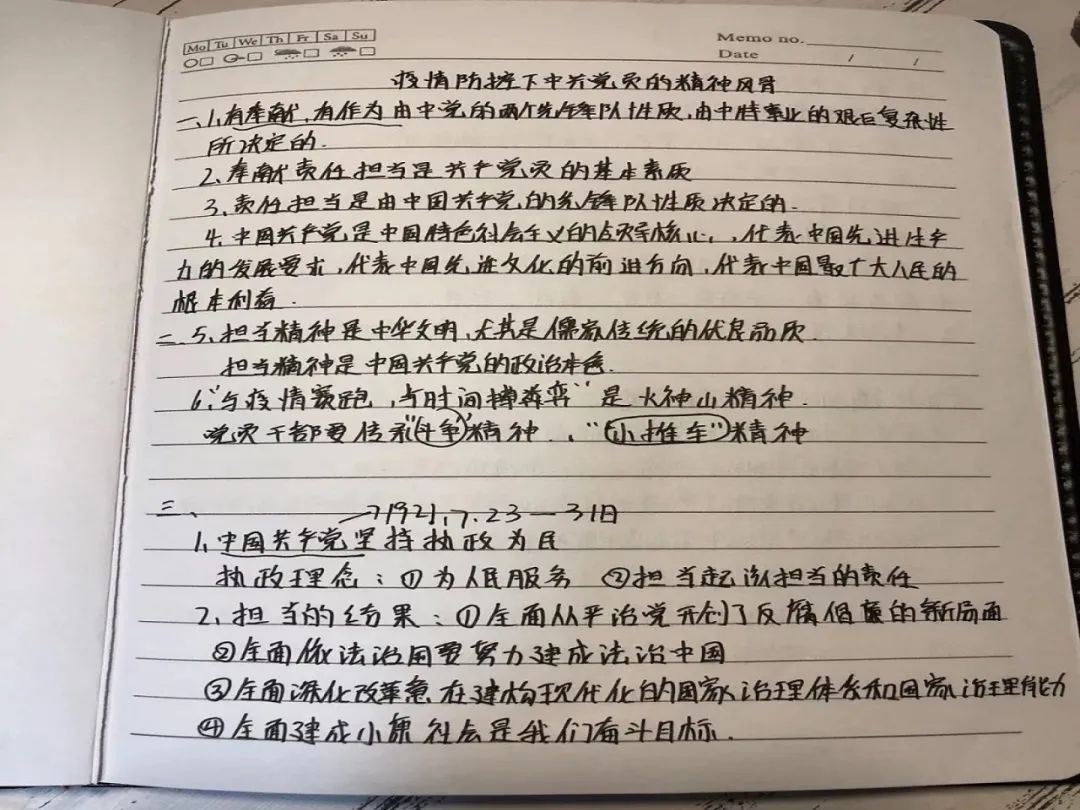 Mo Tu We Th Fr Sa Su
Memo no.
Date / /
疫情防控下中共党员的精神风骨
一、1.有奉献,有作为由中党的两个先锋队性质,由中特事业的艰巨复杂性
所决定的.
2、奉献责任担当是共产党员的基本素质
3、责任担当是由中国共产党的先锋队性质决定的.
4、中国共产党是中国特色社会主义的领导核心,,代表中国先进生产
力的发展要求,代表中国先进文化的前进方向,代表中国最广大人民的
根本利益.
二、5、担当精神是中华文明,尤其是儒家传统的优良品质.
担当精神是中国共产党的政治本色.
6、“与疫情赛跑,与时间搏弈”是火神山精神.
党员干部要传承“斗争”精神.、“小推车”精神
三、
1921.7.23—31日
1、中国共产党坚持执政为民
执政理念:①为人民服务 ②担当起该担当的责任
2、担当的结果:①全面从严治党开创了反腐倡廉的新局面
②全面依法治国要努力建成法治中国
③全面深化改革意在建构现代化的国家治理体系和国家治理能力
④全面建成小康社会是我们奋斗目标.